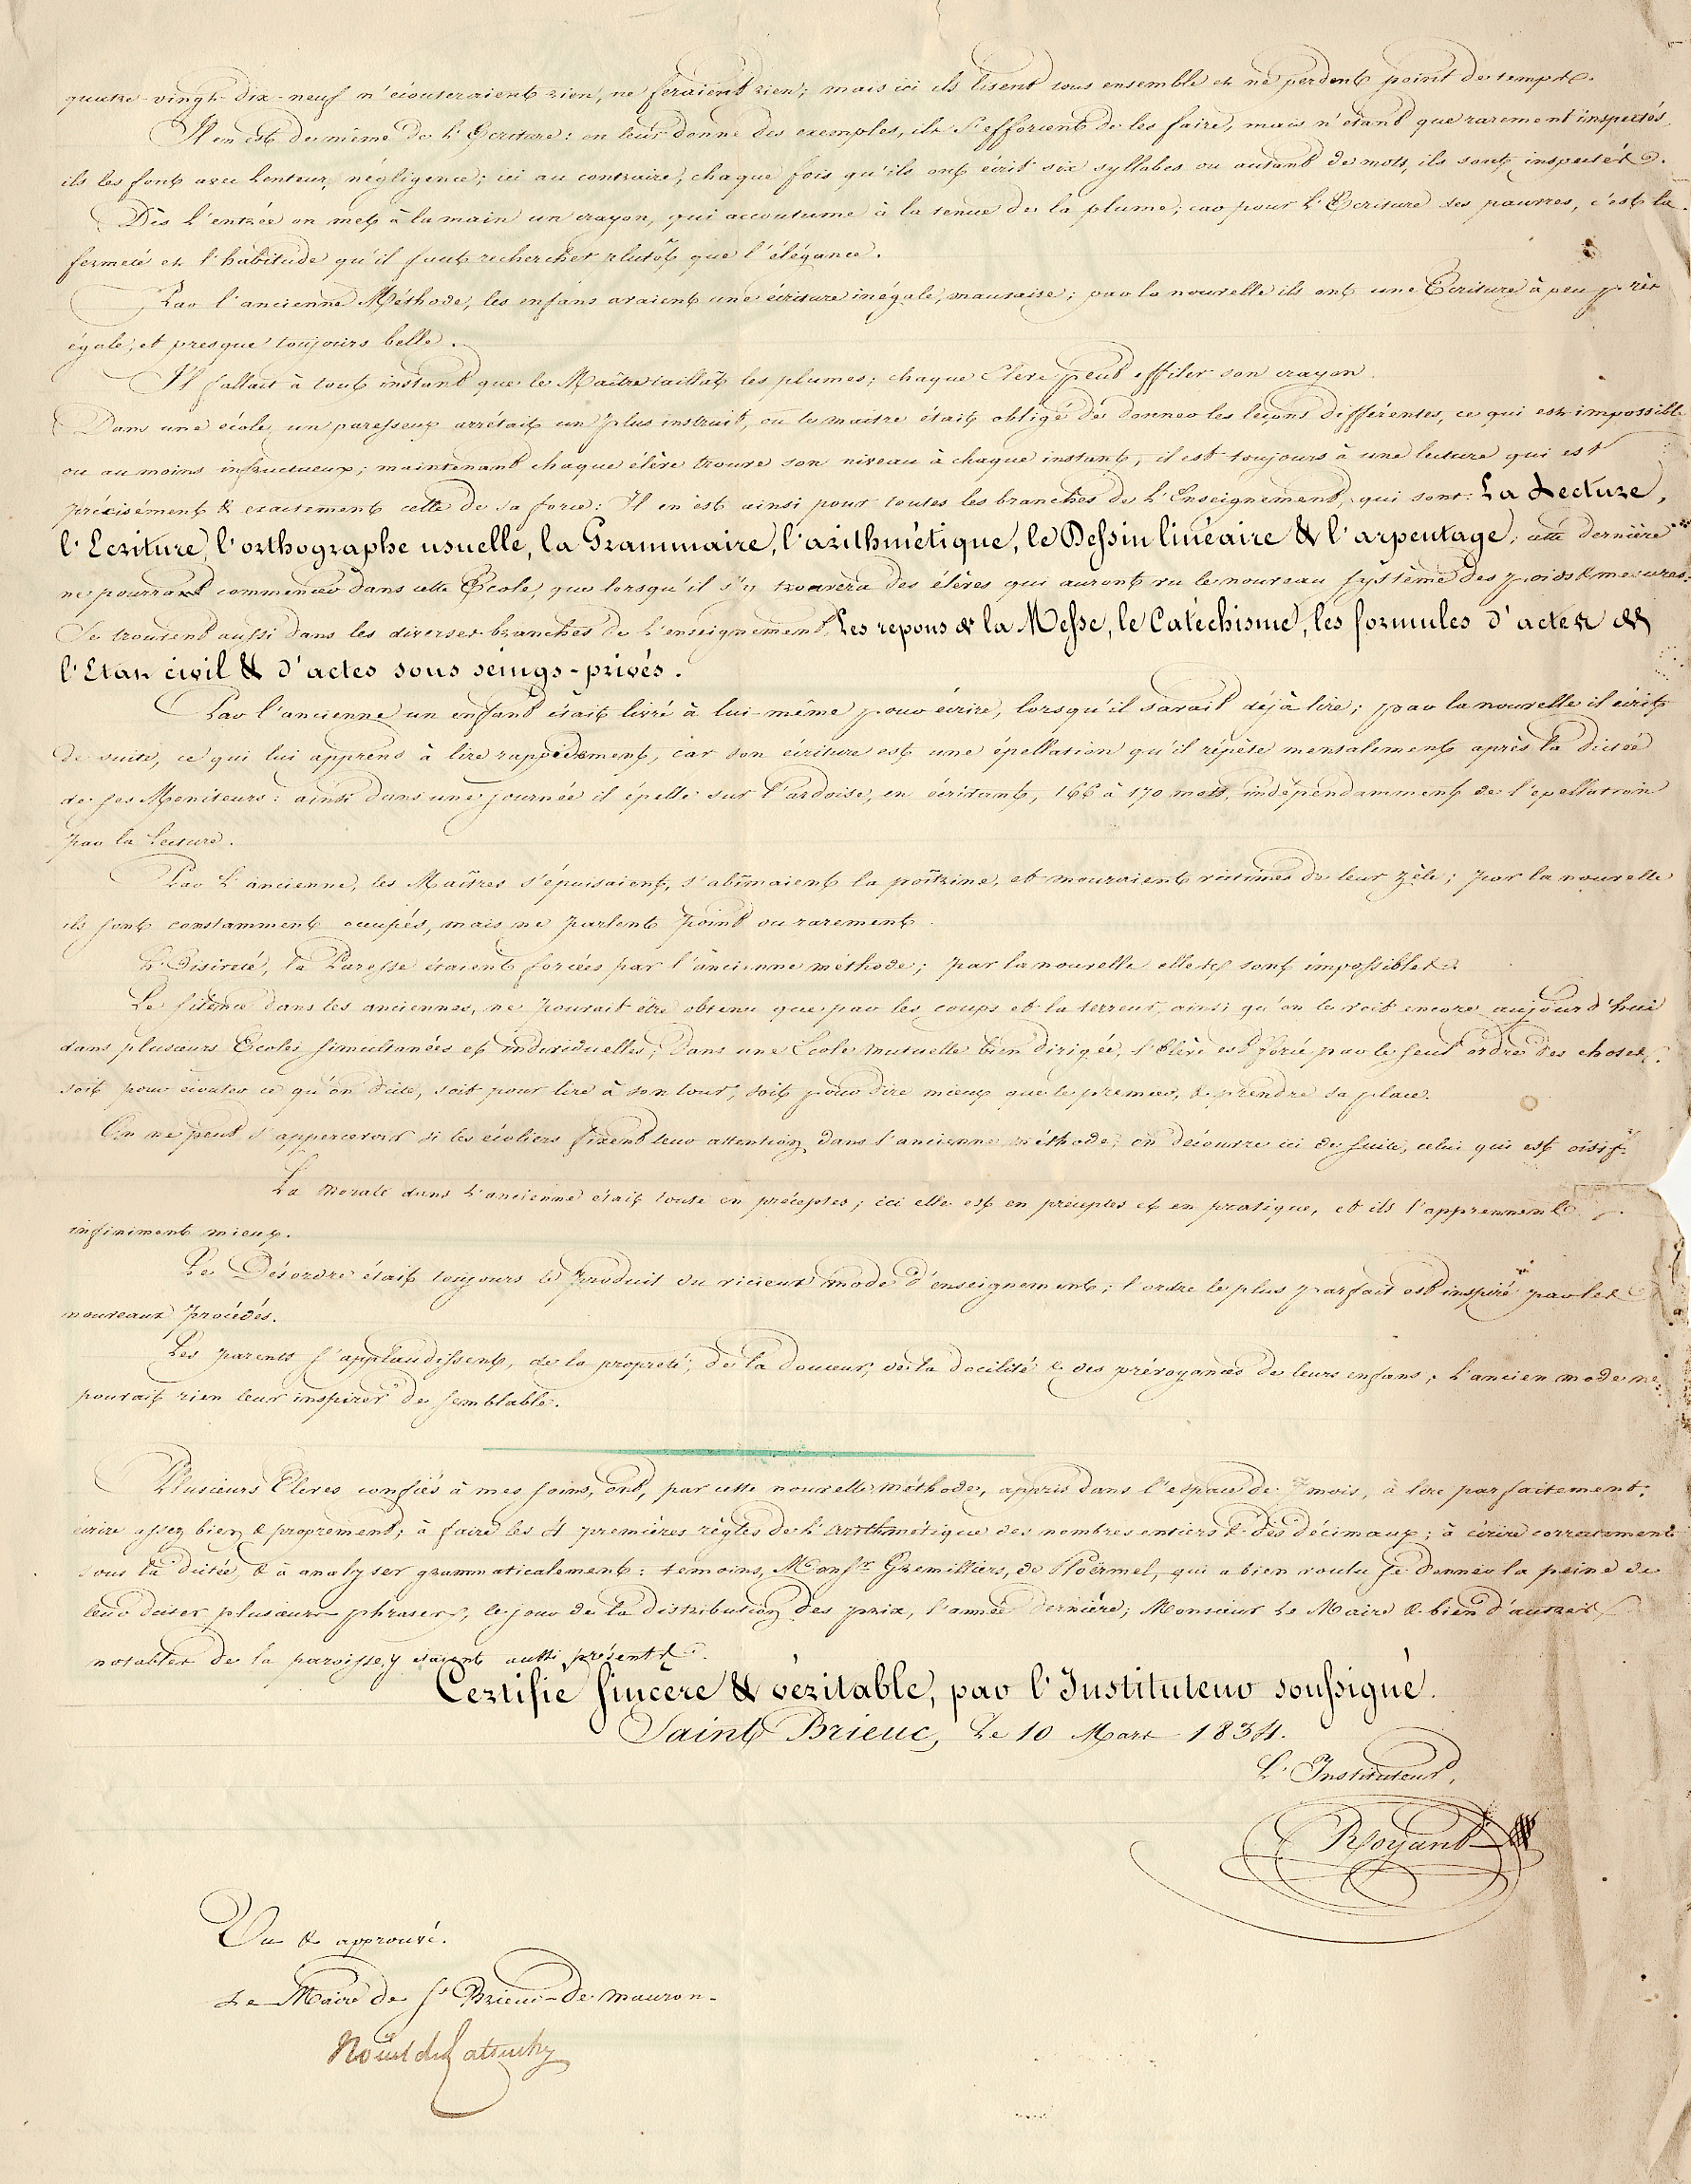 quatre-vingt-dix-neuf n'écouteraient rien, ne feraient rien; mais ici ils lisent tous ensemble et ne perdent point de temps.
Il en est de même de l'Ecriture: on leur donne des exemples, ils s'efforcent de les faire, mais n'étant que rarement inspectés,
ils les font avec lenteur, négligence; ici au contraire, chaque fois qu'ils ont écrit six syllabes ou autant de mots, ils sont inspectés.
Dès l'entrée on met à la main un crayon, qui accoutume à la tenue de la plume; car pour l'Ecriture des pauvres, c'est la
fermeté et l'habitude qu'il faut rechercher plutôt que l'élégance.
Par l'ancienne Méthode, les enfans avaient une écriture inégale, mauvaise; par la nouvelle ils ont une Ecriture à peu près
égale, et presque toujours belle.
Il fallait à tout instant que le Maître taillât les plumes; chaque Elève peut effiler son crayon.
Dans une école, un paresseux arrêtait un plus instruit, ou le maître était obligé de donner les leçons différentes, ce qui est impossible
ou au moins infructueux; maintenant chaque élève trouve son niveau à chaque instant, il est toujours à une lecture qui est
précisément & exactement celle de sa force: Il en est ainsi pour toutes les branches de l'Enseignement, qui sont: La Lecture,
l'Ecriture, l'orthographe usuelle, la Grammaire, l'arithmétique, le Dessin linéaire & l'arpentage; cette dernière
ne pourront commencer dans cette Ecole, que lorsqu'il s'y trouvera des élèves qui auront vu le nouveau système des poids & mesures.
Se trouvent aussi dans les diverses branches de l'enseignement, Les repons de la Messe, le Catéchisme, les formules d'actes de
l'Etat civil & d'actes sous seings-privés.
Par l'ancienne un enfant était livré à lui-même pour écrire, lorsqu'il savait déjà lire; par la nouvelle il écrit
de suite, ce qui lui apprend à lire rapidement, car son écriture est une épellation qu'il répète mentalement après la dictée
de ses Moniteurs: ainsi dans une journée il épelle sur l'ardoise, en écrivant, 166 à 170 mots, indépendamment de l'epellation
par la lecture.
Par l'ancienne, les Maîtres s'épuisaient, s'abîmaient la poîtrine, et mouraient victimes de leur zèle; par la nouvelle
ils sont constamment occupés, mais ne parlent point ou rarement.
L'Oisiveté, la Paresse étaient forcées par l'ancienne méthode; par la nouvelle elles sont impossibles.
Le silence dans les anciennes, ne pouvait être obtenu que par les coups et la terreur, ainsi qu'on le voit encore aujourd'hui
dans plusieurs Ecoles simultanées et individuelles; Dans une Ecole mutuelle bien dirigée, l'Elève est forcé par le seul ordre des choses,
soit pour écouter ce qu'on dicte, soit pour lire à son tour, soit pour dire mieux que le premier, & prendre sa place.
On ne peut s'appercevoir si les écoliers fixent leur attention dans l'ancienne méthode; on découvre ici de suite, celui qui est oisif.
La Morale dans l'ancienne était toute en préceptes; ici elle est en préceptes et en pratique, et ils l'apprennent
infiniment mieux.
Le Désordre était toujours le produit du vicieux mode d'enseignement; l'ordre le plus parfait est inspiré par les
nouveaux procédés.
Les parents s'applaudissent, de la propreté, de la douceur, de la docilité & des prévoyances de leurs enfans; l'ancien mode ne
pouvait rien leur inspirer de semblable.
Plusieurs Elèves confiés à mes soins, ont, par cette nouvelle méthode, appris dans l'espace de 7 mois, à lire parfaitement;
écrire assez bien & proprement; à faire les 4 premières règles de l'arithmétique des nombres entiers & des décimaux; à écrire correctement
sous la dictée, & à analyser grammaticalement: temoins, Monsr Gremillier, de Ploërmel, qui a bien voulu se donner la peine de
leur dicter plusieurs phrases, le jour de la distribution des prix, l'année dernière; Monsieur Le Maire & bien d'autres
notables de la paroisse, y étaient aussi présents.
Certifié sincère & véritable, par l'Instituteur soussigné.
Saint Brieuc, Le 10 Mars 1834.
L'Instituteur,
Royant
Vu & approuvé.
Le Maire de St Brieuc-de-mauron.